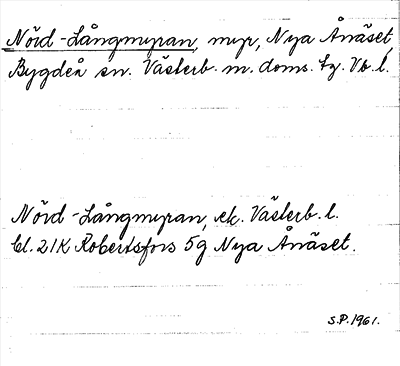 Nörd-Långmyran, myr, Nya Ånäset,
Bygdeå sn. Västerb. m. doms. tg. Vb. l.
Nörd-Långmyran, ek. Västerb. l.
bl. 21K Robertsfors 5g Nya Ånäset.
S.P. 1961.